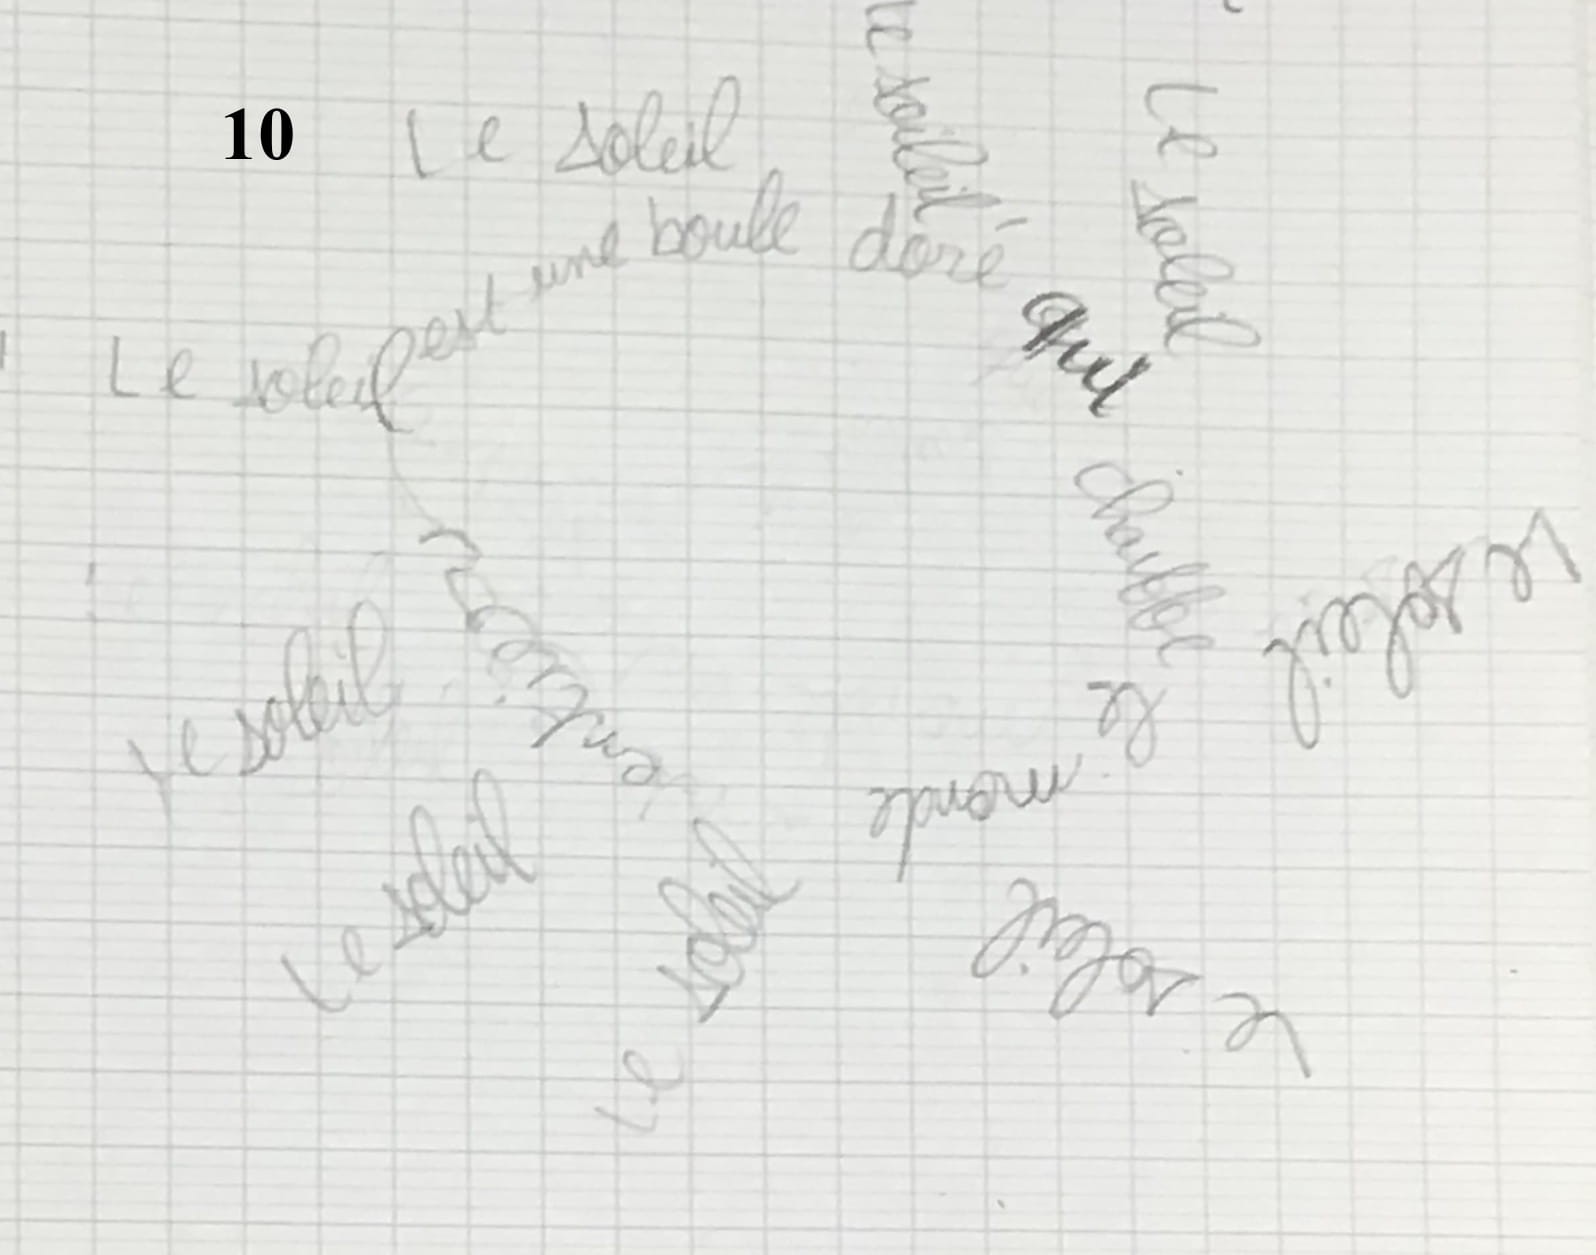 10
Le soleil
le soileil
Le soleil
Le soleil est une boule doré qui chauffe le monde entier
le soleil
le soleil
Le soleil
Le soleil
Le soleil